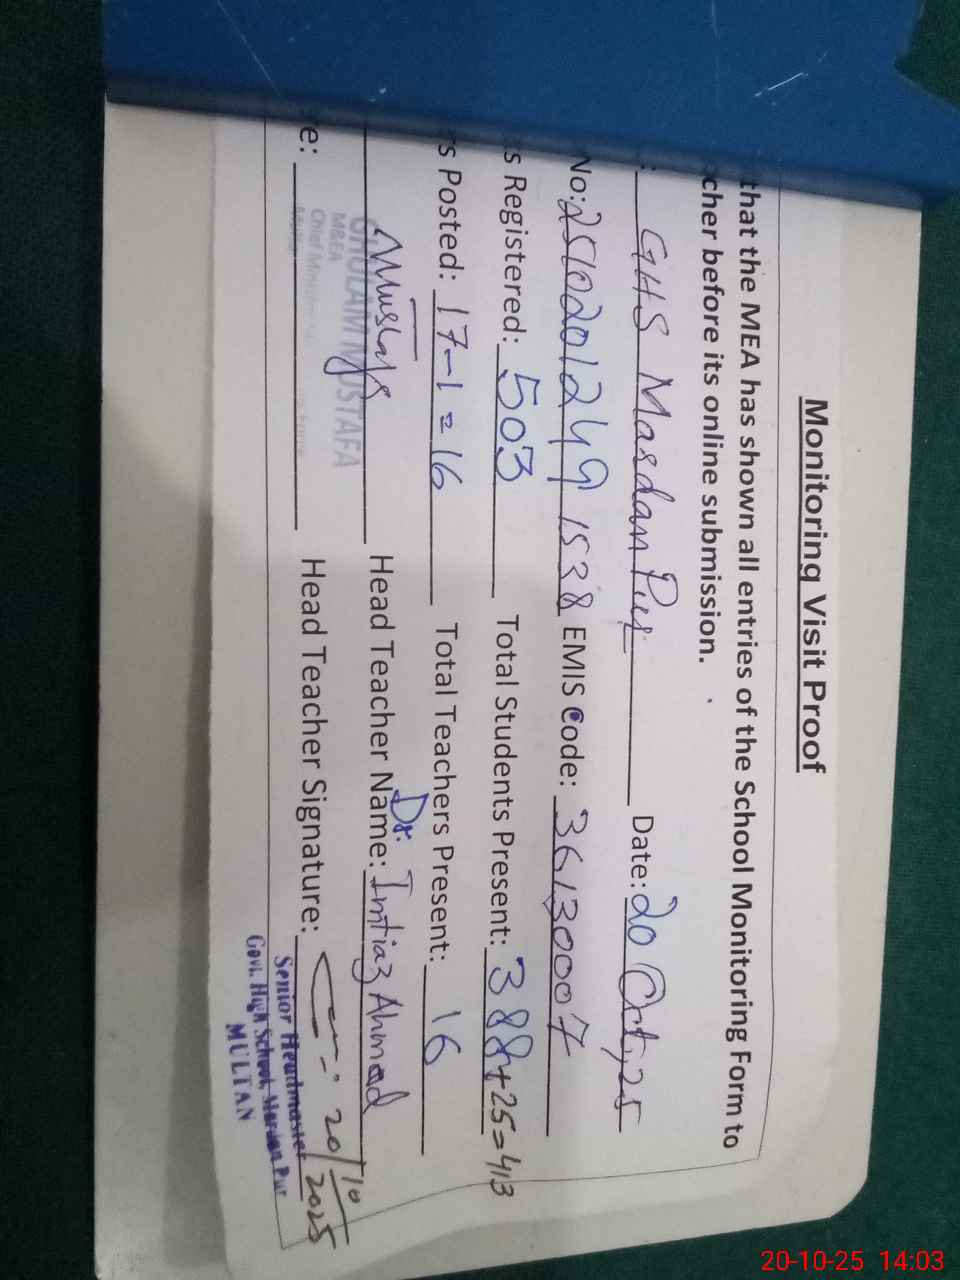 Monitoring Visit Proof
that the MEA has shown all entries of the School Monitoring Form to
cher before its online submission.
: GHS Mardan Pur Date: 20 Oct, 25
No: 2510201249 1538 EMIS Code: 36130007
s Registered: 503 Total Students Present: 388+25=413
rs Posted: 17-1=16 Total Teachers Present: 16
GHULAM MUSTAFA Head Teacher Name: Dr. Imtiaz Ahmad
M&EA
re: Head Teacher Signature: 20/10/2025
Senior Headmaster
Govt. High School, Mardan Pur
MULTAN
20-10-25 14:03